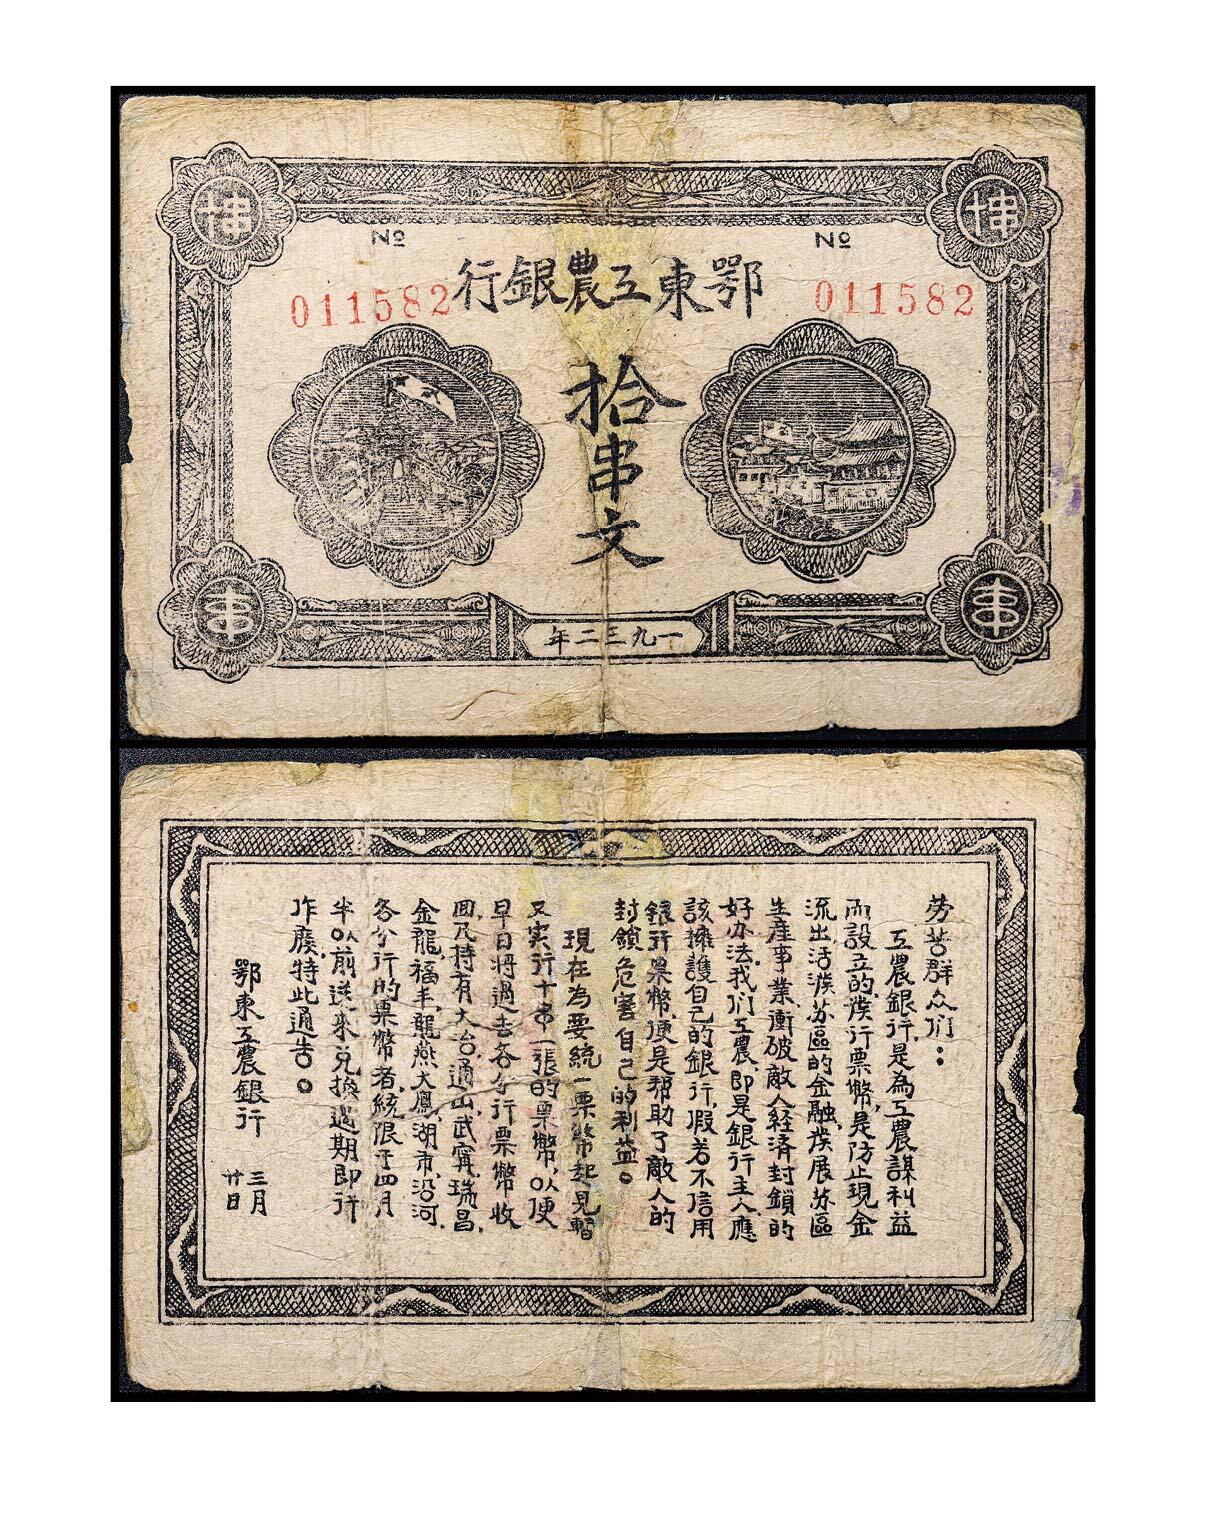 Nº
Nº
鄂東工農銀行
011582
011582
拾串文
串
串
一九三二年
勞苦群众们：
工農銀行,是為工農謀利益
而設立的,發行票幣,是防止現金
流出,活潑苏區的金融,發展苏區
生產事業,衝破敵人経済封鎖的
好办法,我们工農,即是銀行主人應
該擁護自己的銀行,假若不信用
銀行票幣,便是帮助了敵人的
封鎖危害自己的利益。
現在為要統一票幣起見暫
又实行十串一張的票幣,以便
早日將過去各分行票幣收
回,凡持有大冶,通山,武寗,瑞昌,
金龍,福丰,龍燕大鳳,湖市,沿河,
各分行的票幣者,統限于四月
半以前送来兑換過期即行
作廢,特此通告。
鄂東工農銀行
三月
廿日